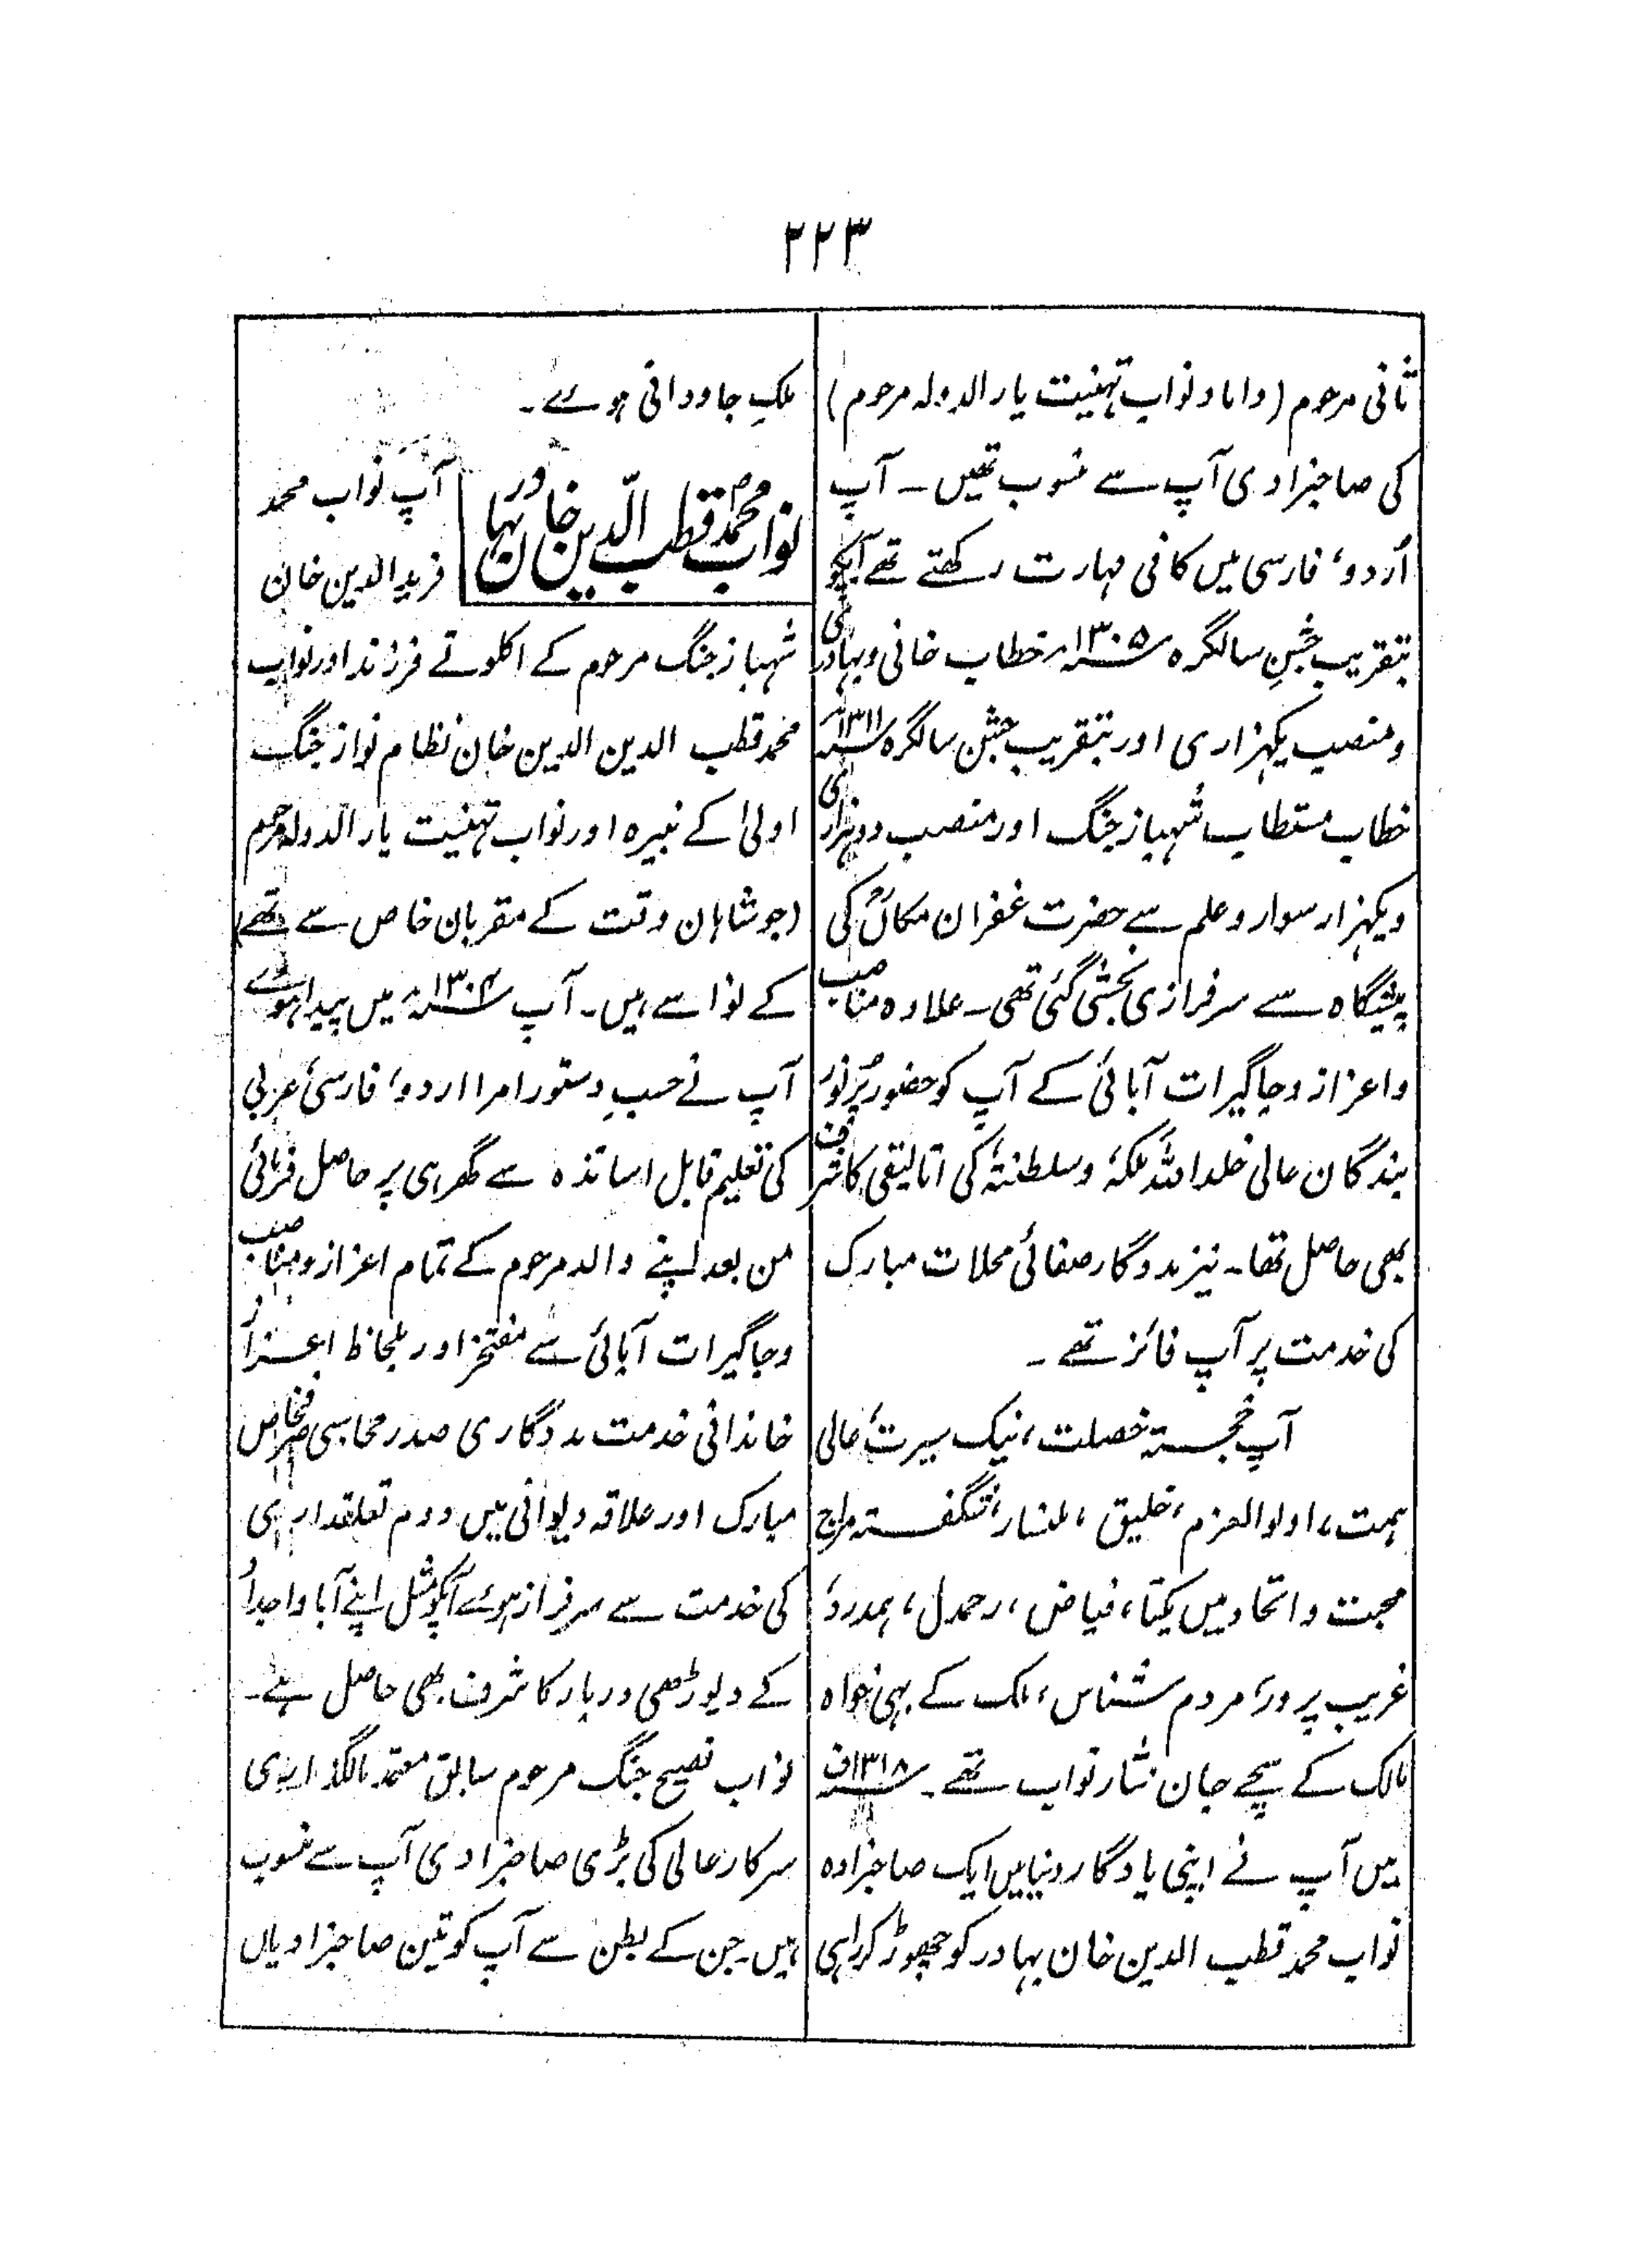 ۲۲۳
ثانی مرحوم (داماد نواب تہنیت یار الدولہ مرحوم)
کی صاحبزادی آپ سے منسوب تھیں ۔ آپ
اُردو، فارسی میں کافی مہارت رکھتے تھے آپکو
بتقریب جشنِ سالگرہ ۱۳۰۵؁ خطاب خانی وبہادری
ومنصب یکہزاری اور بتقریب جشن سالگرہ ۱۳۱۱؁
خطاب مستطاب شہباز جنگ اور منصب دوہزاری
ویکہزار سوار وعلم سے حضرت غفران مکانؒ کی
پیشگاہ سے سرفرازی بخشی گئی تھی ۔ علاوہ مناصب
واعزاز وجاگیرات آبائی کے آپ کو حضور پُرنور
بندگان عالی خلد اللہ ملکہٗ وسلطنتہٗ کی اتالیقی کا شرف
بھی حاصل تھا ۔ نیز مددگار صفائی محلات مبارک
کی خدمت پر آپ فائز تھے ۔
آپ خجستہ خصلت، نیک سیرت، عالی
ہمت، اولوالعزم، خلیق، ملنسار، شگفتہ مزاج
محبت واتحاد میں یکتا، فیاض، رحمدل، ہمدرد،
غریب پرور، مردم شناس، ملک کے بہی خواہ
مالک کے سچے جان نثار نواب تھے ۔ ۱۳۱۸؁ف
میں آپ نے اپنی یادگار دنیا میں ایک صاحبزادہ
نواب محمد قطب الدین خان بہادر کو چھوڑ کر راہی
ملکِ جاودانی ہوے ۔
نواب محمد قطب الدّین خان بہادر
آپ نواب محمد
فرید الدین خان
شہباز جنگ مرحوم کے اکلوتے فرزند اور نواب
محمد قطب الدین الدین خان نظام نواز جنگ
اولیٰ کے نبیرہ اور نواب تہنیت یار الدولہ مرحوم
(جو شاہان وقت کے مقربان خاص سے تھے)
کے نواسے ہیں ۔ آپ ۱۳۰۴؁ میں پیدا ہوے
آپ نے حسبِ دستور امرا اردو، فارسی، عربی
کی تعلیم قابل اساتذہ سے گھر ہی پر حاصل فرمائی
من بعد اپنے والد مرحوم کے تمام اعزاز ومناصب
وجاگیرات آبائی سے مفتخر اور بلحاظ اعزاز
خاندانی خدمت مددگاری صدر محاسبی صرفخاص
مبارک اور علاقہ دیوانی میں دوم تعلقداری
کی خدمت سے سرفراز ہوے آپکو مثل اپنے آبا واجداد
کے دیوڑھی دربار کا شرف بھی حاصل ہے ۔
نواب فصیح جنگ مرحوم سابق معتمد مالگذاری
سرکار عالی کی بڑی صاحبزادی آپ سے منسوب
ہیں ۔ جن کے بطن سے آپ کو تین صاحبزادیاں